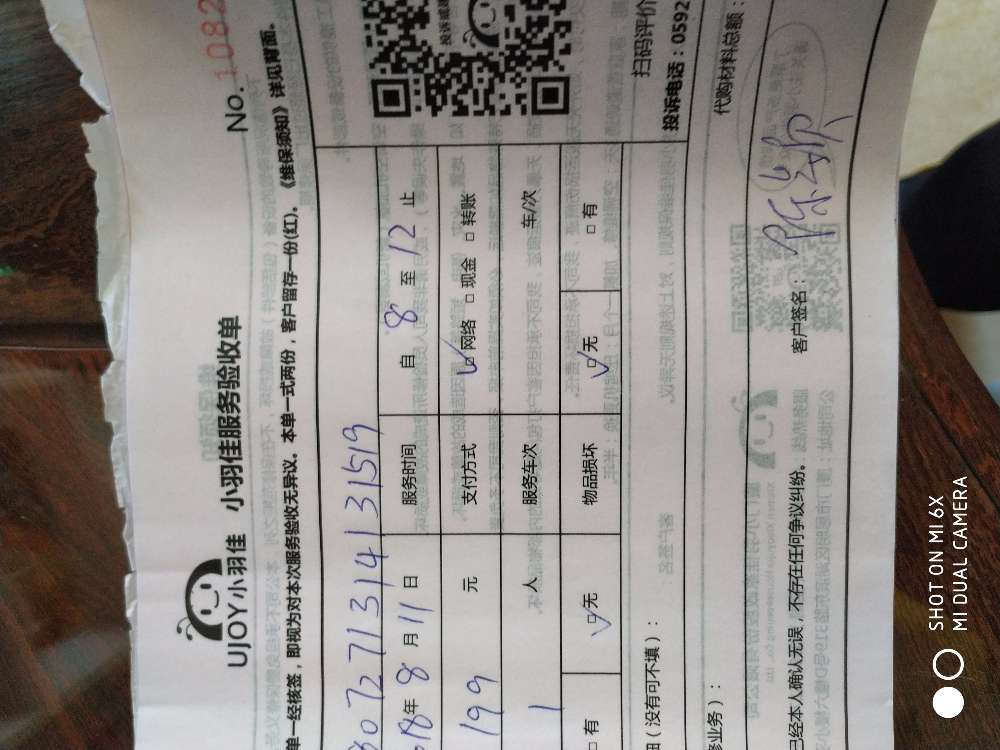 No. 1082
UJOY小羽佳 小羽佳服务验收单
单一经核签，即视为对本次服务验收无异议。本单一式两份，客户留存一份(红)。《维保须知》详见背面。
307271314131519
018年8月11日 服务时间 自 8 至 12 止
199 元 支付方式 ☑网络 □现金 □转账
1 人 服务车次 车/次
□有 ☑无 物品损坏 ☑无 □有
投诉或建
扫码评价
投诉电话：0592
细（没有可不填）：
修业务）：
代购材料总额：
已经本人确认无误，不存在任何争议纠纷。 客户签名：
SHOT ON MI 6X
MI DUAL CAMERA